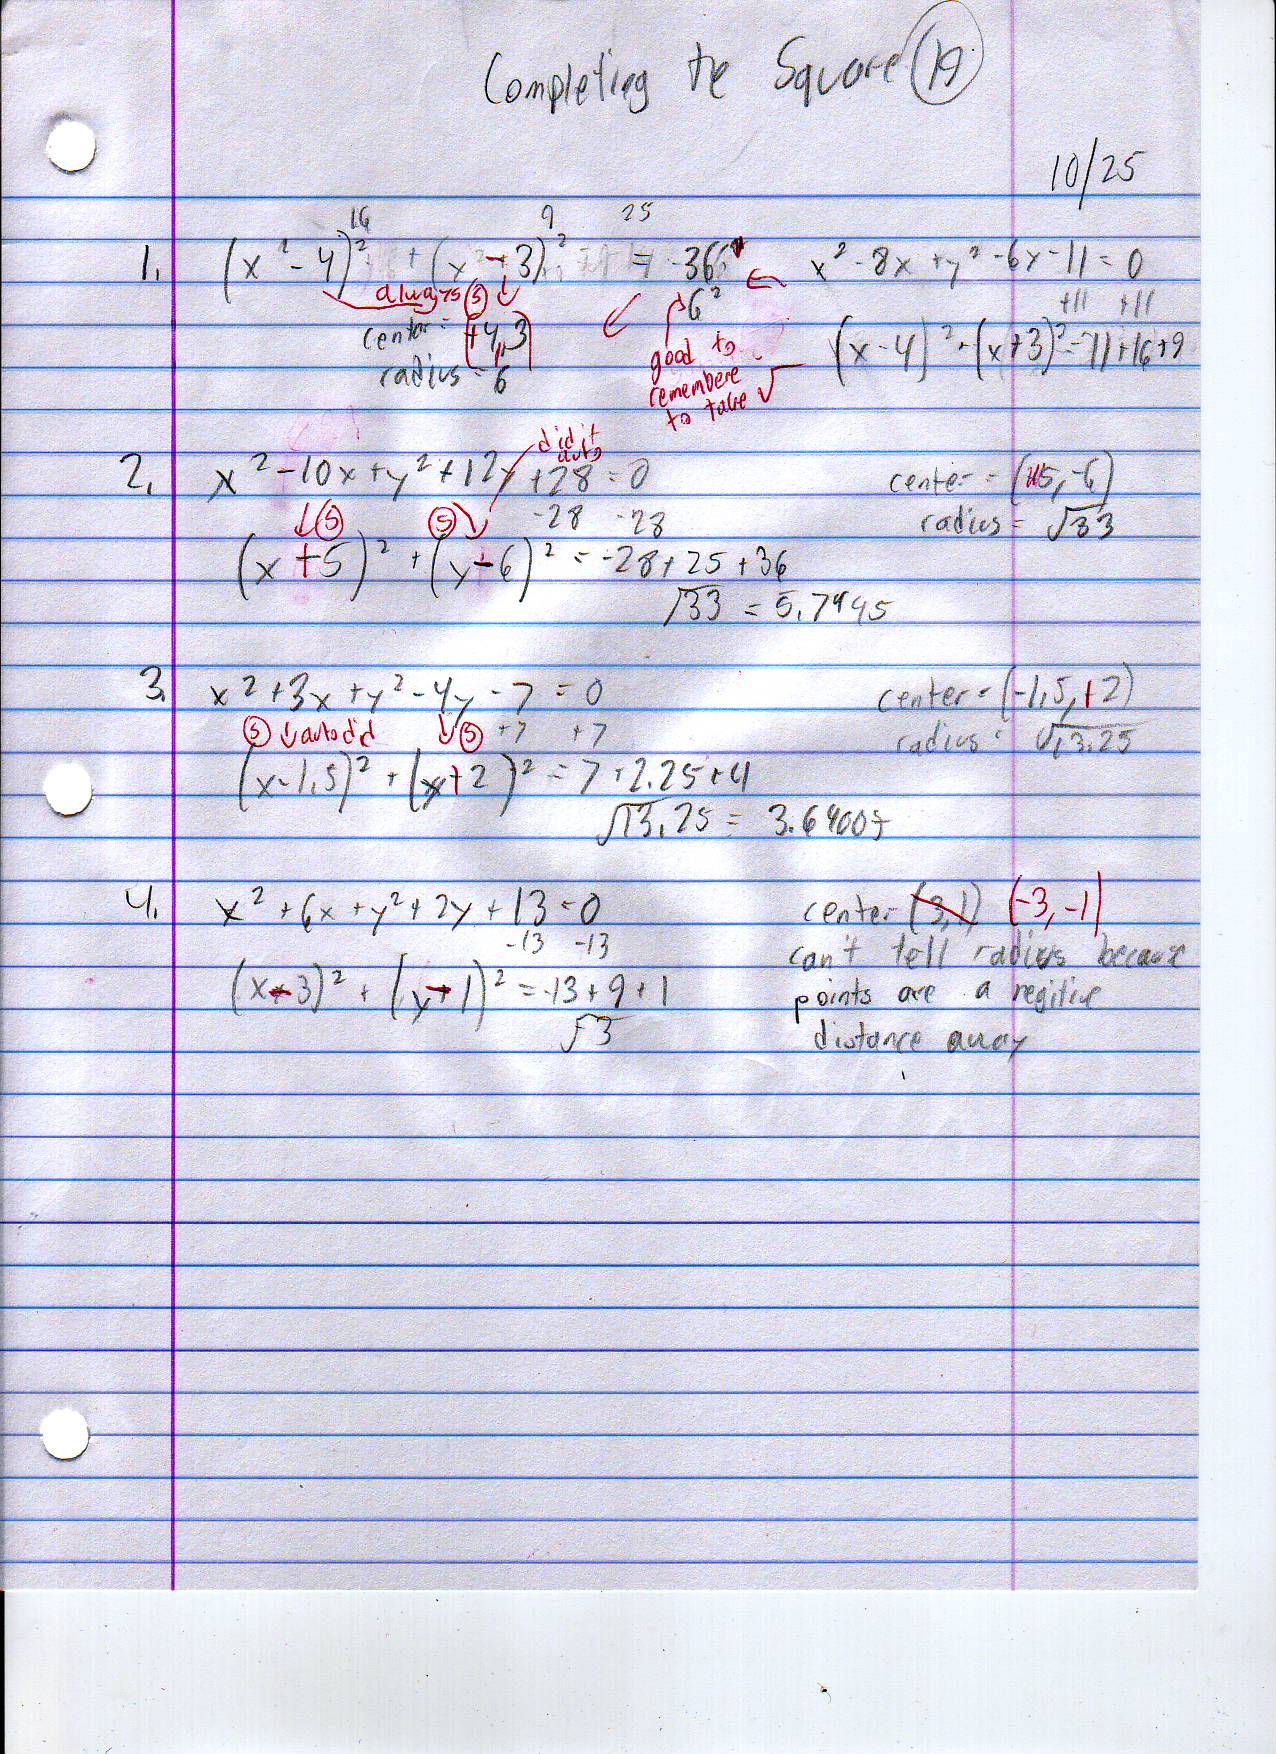 Completing the Square 19
10/25
16 9 25
1. (x² - 4)² + (x² - 3)² = 36 x² - 8x + y² - 6x - 11 = 0
always S 6² +11 +11
center = (+4, 3) (x - 4)² + (x + 3)² = 11 + 16 + 9
radius = 6
good to
remembere
to take √
did it
auto
2. x² - 10x + y² + 12y + 28 = 0 center = (+5, -6)
S S -28 -28 radius = √33
(x + 5)² + (y - 6)² = -28 + 25 + 36
√33 = 5.7445
3. x² + 3x + y² - 4y - 7 = 0 center = (-1.5, +2)
S auto did S +7 +7 radius = √13.25
(x - 1.5)² + (y + 2)² = 7 + 2.25 + 4
√13.25 = 3.64005
4. x² + 6x + y² + 2y + 13 = 0 center (3, 1) (-3, -1)
-13 -13 can't tell radius because
(x - 3)² + (y + 1)² = -13 + 9 + 1 points are a negitive
√3 distance away